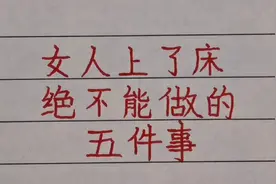 女人上了床
绝不能做的
五件事